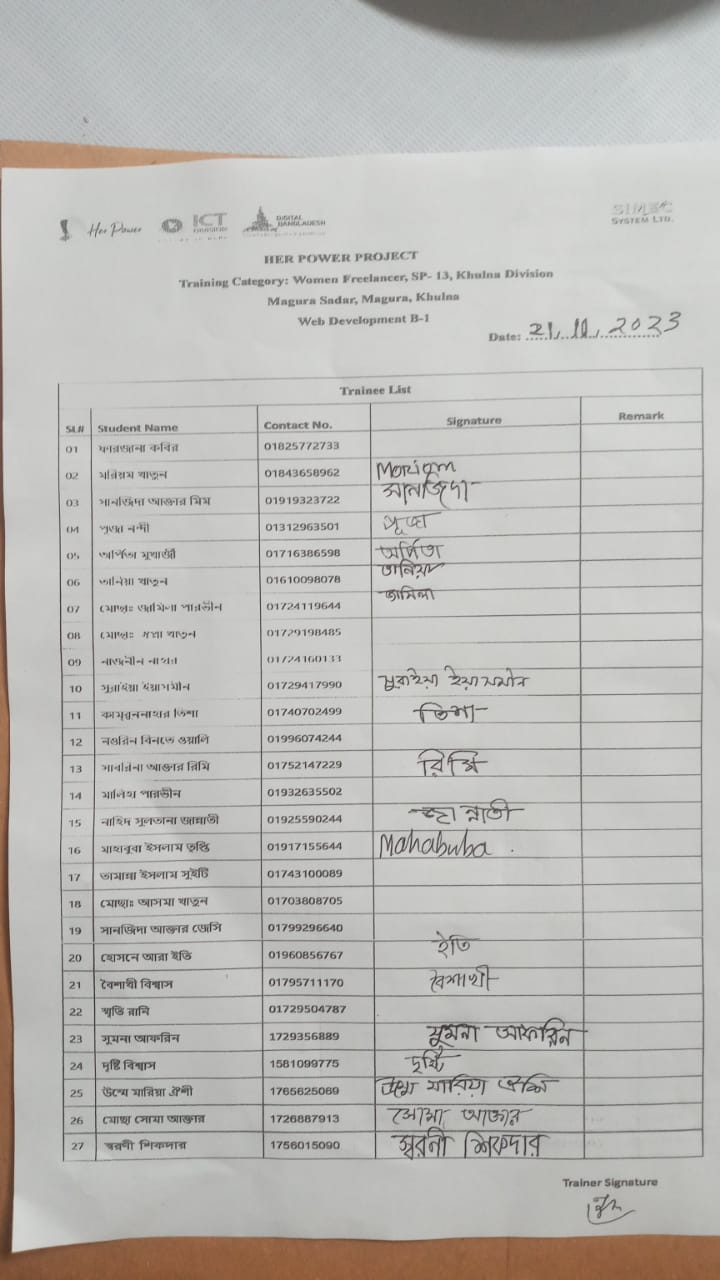 Her Power
ICT
DIVISION
DIGITAL
BANGLADESH
SIMEC
SYSTEM LTD.
HER POWER PROJECT
Training Category: Women Freelancer, SP- 13, Khulna Division
Magura Sadar, Magura, Khulna
Web Development B-1
Date: 21, 11, 2023
Trainee List
SL# Student Name Contact No. Signature Remark
01 ফারজানা কবির 01825772733
02 মরিয়ম খাতুন 01843658962 Moriom
03 সানজিদা আক্তার মিম 01919323722 সানজিদা
04 পূজা নন্দী 01312963501 পূজা
05 অর্পিতা মুখার্জী 01716386598 অর্পিতা
06 তানিয়া খাতুন 01610098078 তানিয়া
07 মোছাঃ জামিলা পারভীন 01724119644 জামিলা
08 মোছাঃ খাতুন 01729198485
09 নাজনীন নাহার 01724160133
10 সুরাইয়া ইয়াসমীন 01729417990 সুরাইয়া ইয়াসমীন
11 কামরুননাহার তিশা 01740702499 তিশা
12 নওরিন বিনতে ওয়ালি 01996074244
13 সাবরিনা আক্তার রিমি 01752147229 রিমি
14 মালিহা পারভীন 01932635502
15 নাহিদ সুলতানা জান্নাতী 01925590244 জান্নাতী
16 মাহাবুবা ইসলাম তৃপ্তি 01917155644 Mahabuba .
17 তামান্না ইসলাম সুইটি 01743100089
18 মোছাঃ আসমা খাতুন 01703808705
19 সানজিদা আক্তার জেসি 01799296640
20 হোসনে আরা ইতি 01960856767 ইতি
21 বৈশাখী বিশ্বাস 01795711170 বৈশাখী
22 স্মৃতি রানি 01729504787
23 সুমনা আফরিন 1729356889 সুমনা আফরিন
24 দৃষ্টি বিশ্বাস 1581099775 দৃষ্টি
25 উম্মে মারিয়া ঐশী 1765625069 উম্মে মারিয়া ঐশি
26 মোছা সোমা আক্তার 1726887913 সোমা আক্তার
27 স্বরণী শিকদার 1756015090 স্বরনী শিকদার
Trainer Signature